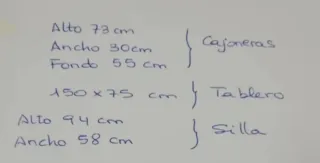 Alto 73 cm
Ancho 30cm
Fondo 55 cm
Cajoneras
150 x 75 cm
Tablero
Alto 94 cm
Ancho 58 cm
Silla